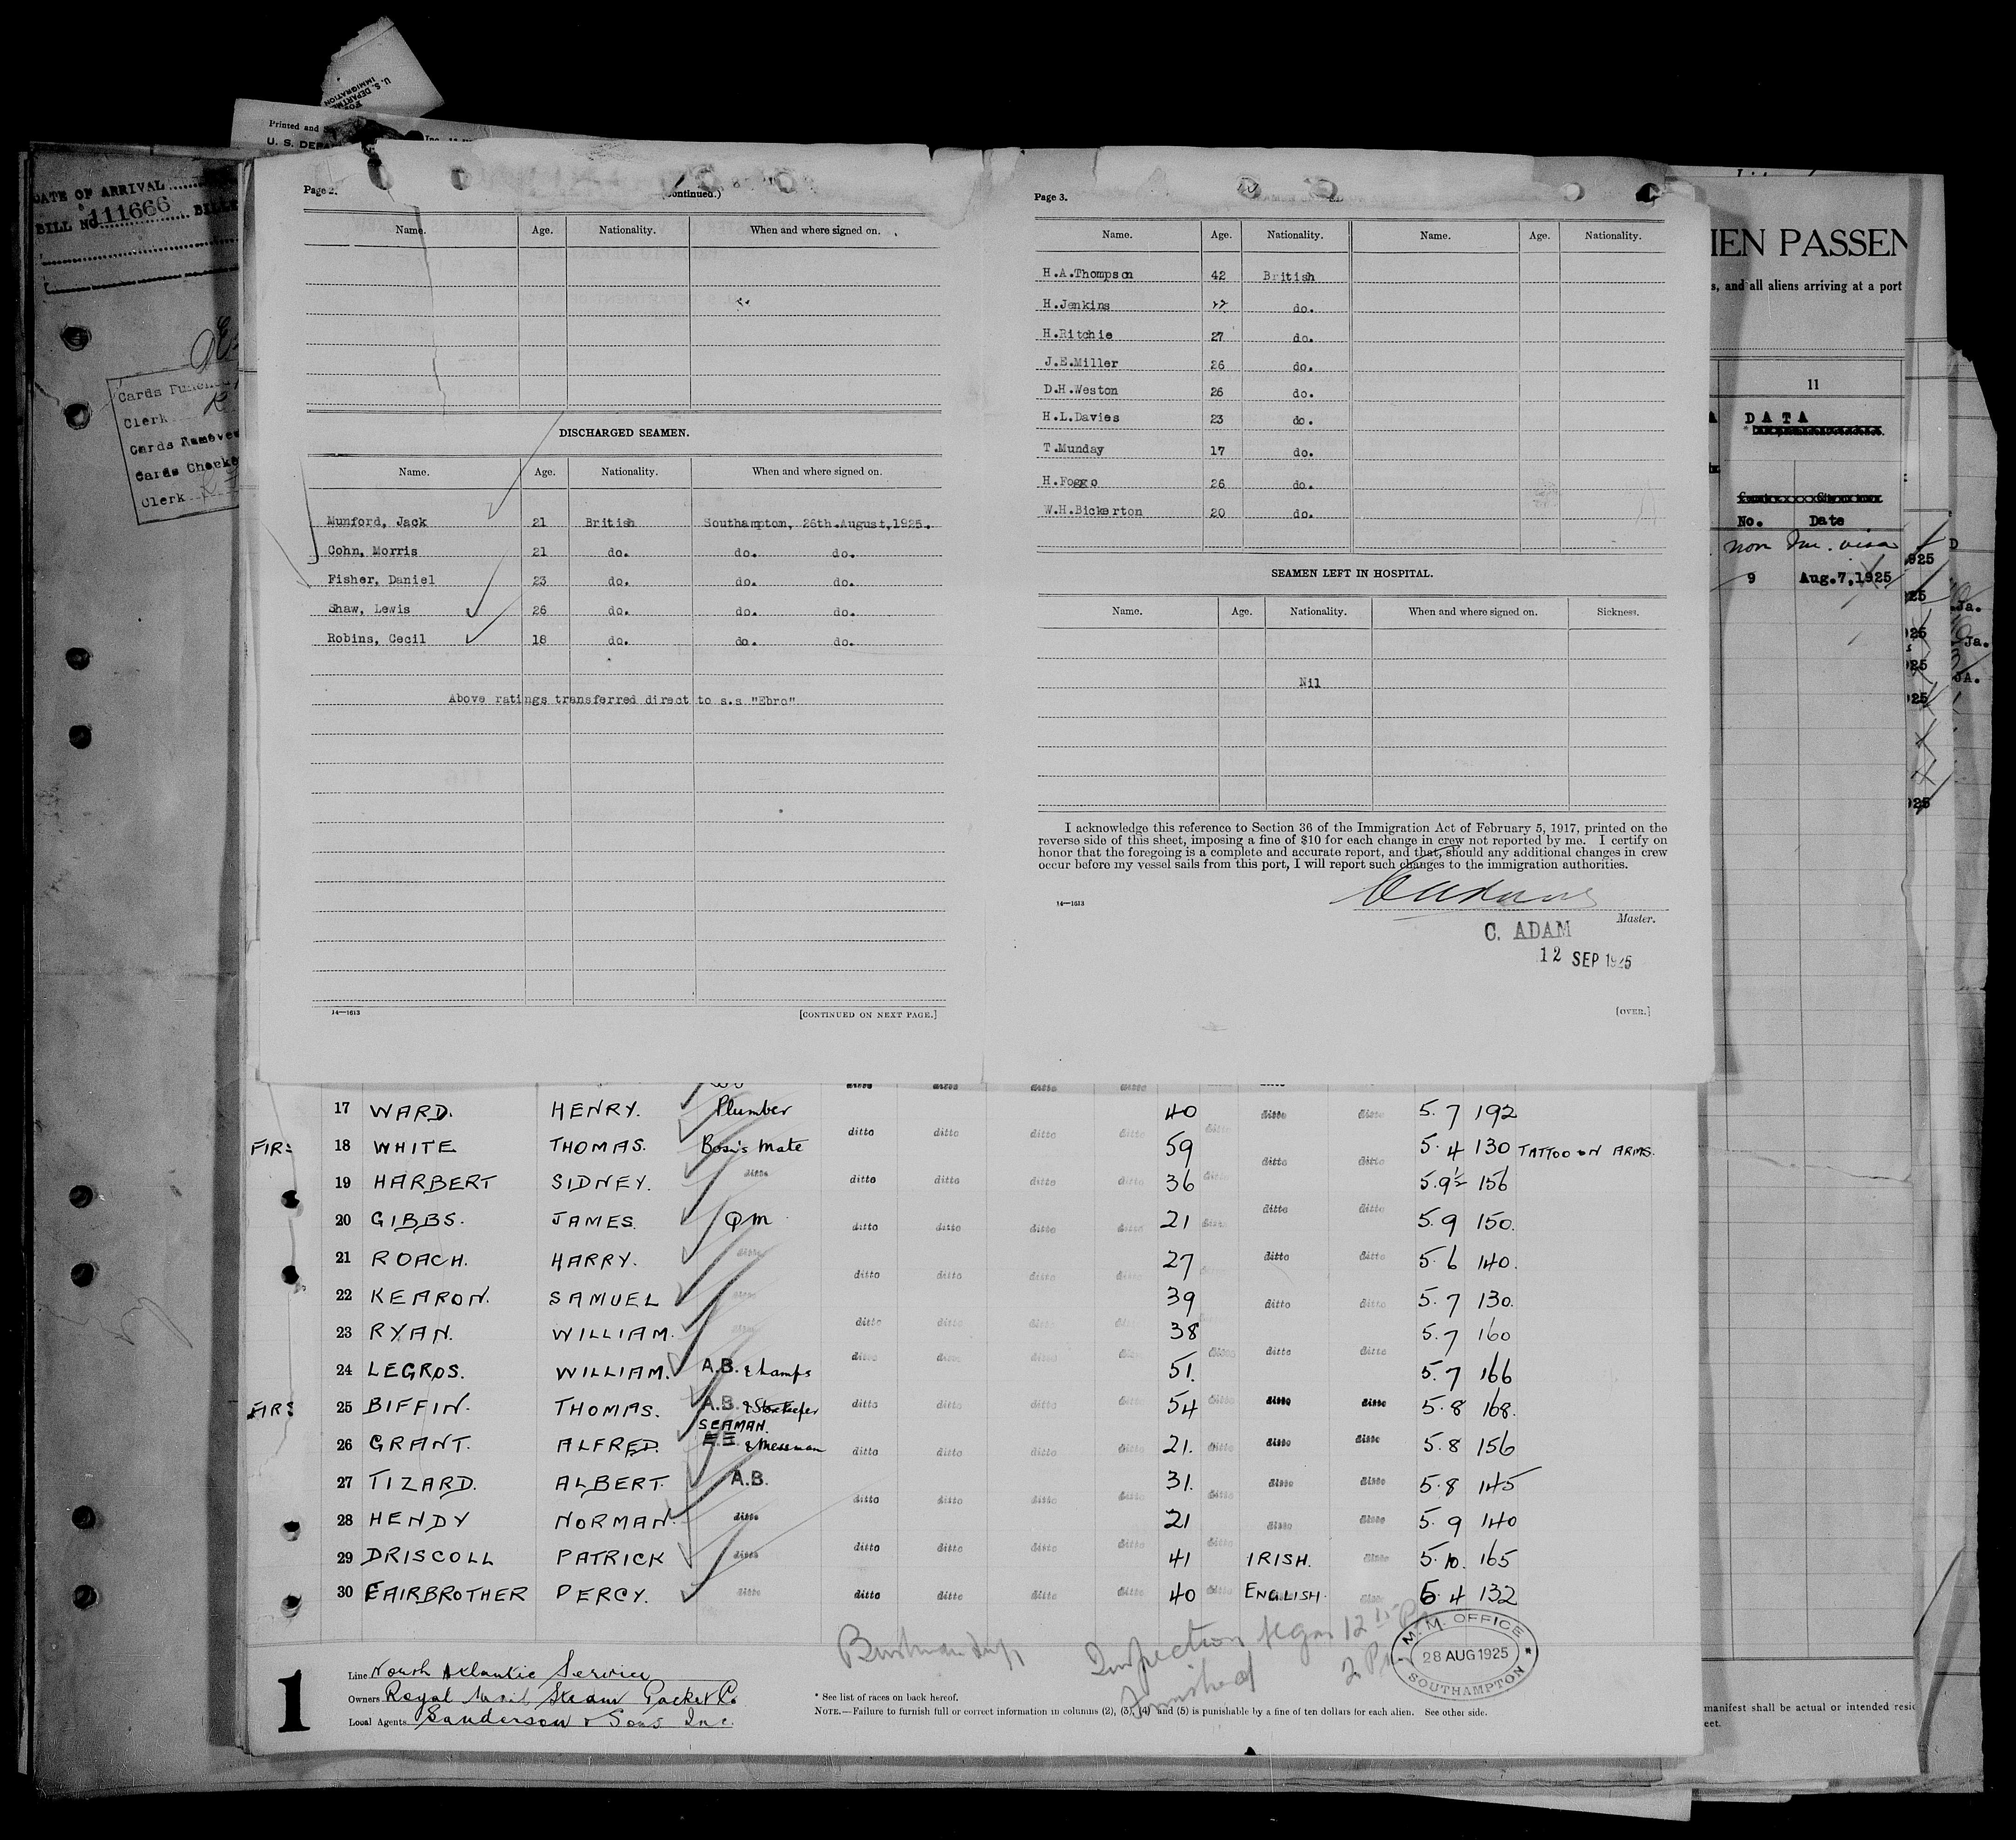 U. S. DEPARTME
IMMIGRATION
Printed and
U. S. DEPA
DATE OF ARRIVAL
BILL NO. 111666 BILLE
Cards Punched
Clerk
Cards Removed
Cards Checke
Clerk
Page 2. (Continued.)
Name. Age. Nationality. When and where signed on.
DISCHARGED SEAMEN.
Name. Age. Nationality. When and where signed on.
Munford, Jack 21 British Southampton, 26th.August,1925.
Cohn, Morris 21 do. do. do.
Fisher, Daniel 23 do. do. do.
Shaw, Lewis 26 do. do. do.
Robins, Cecil 18 do. do. do.
Above ratings transferred direct to s.s "Ebro"
14—1613 [CONTINUED ON NEXT PAGE.]
Page 3.
Name. Age. Nationality. Name. Age. Nationality.
H.A.Thompson 42 British
H.Jenkins do.
H.Ritchie 27 do.
J.E.Miller 26 do.
D.H.Weston 26 do.
H.L.Davies 23 do.
T.Munday 17 do.
H.Foggo 26 do.
W.H.Bickerton 20 do.
SEAMEN LEFT IN HOSPITAL.
Name. Age. Nationality. When and where signed on. Sickness.
Nil
I acknowledge this reference to Section 36 of the Immigration Act of February 5, 1917, printed on the
reverse side of this sheet, imposing a fine of $10 for each change in crew not reported by me. I certify on
honor that the foregoing is a complete and accurate report, and that, should any additional changes in crew
occur before my vessel sails from this port, I will report such changes to the immigration authorities.
14—1613
Master.
C. ADAM
12 SEP 1925
[OVER.]
IEN PASSEN
s, and all aliens arriving at a port
11
DATA
No. Date
non Im. visa
9 Aug.7,1925
925
25
25
925
25
25
D
Ja.
Ja.
JA.
ditto ditto ditto ditto
17 WARD. HENRY. Plumber 40 ditto ditto 5.7 192
FIRS 18 WHITE THOMAS. Bosn's Mate ditto ditto ditto ditto 59 ditto ditto 5.4 130 TATTOO ON ARMS.
19 HARBERT SIDNEY. ditto ditto ditto ditto ditto 36 ditto 5.9½ 156
20 GIBBS. JAMES. QM ditto ditto ditto ditto 21 ditto ditto ditto 5.9 150.
21 ROACH. HARRY. ditto ditto ditto ditto ditto 27 ditto ditto 5.6 140.
22 KEARON. SAMUEL 39 ditto ditto 5.7 130.
23 RYAN. WILLIAM. ditto ditto ditto ditto 38 5.7 160
24 LEGROS. WILLIAM. A.B. & Lamps ditto ditto ditto ditto 51. ditto ditto ditto 5.7 166
FIRS 25 BIFFIN. THOMAS. A.B. & Storekeeper ditto ditto ditto ditto 54 ditto ditto ditto 5.8 168.
SEAMAN.
26 GRANT. ALFRED. & Messman ditto ditto ditto ditto 21. ditto ditto ditto 5.8 156
27 TIZARD. ALBERT. A.B. ditto ditto ditto ditto 31. ditto ditto ditto 5.8 145
28 HENDY NORMAN. ditto 21 ditto ditto 5.9 140
29 DRISCOLL PATRICK ditto ditto ditto ditto ditto 41 ditto IRISH. ditto 5.10. 165
30 FAIRBROTHER PERCY. ditto ditto ditto ditto ditto 40 ditto ENGLISH. ditto 5.4 132
Inspection began 12 15 PM
finished 2 PM
M.M. OFFICE
28 AUG 1925
SOUTHAMPTON
1
Line North Atlantic Service
Owners Royal Mail Steam Packet Co
Local Agents Sanderson & Sons Inc.
* See list of races on back hereof.
NOTE.—Failure to furnish full or correct information in columns (2), (3), (4) and (5) is punishable by a fine of ten dollars for each alien. See other side.
manifest shall be actual or intended resid
eet.